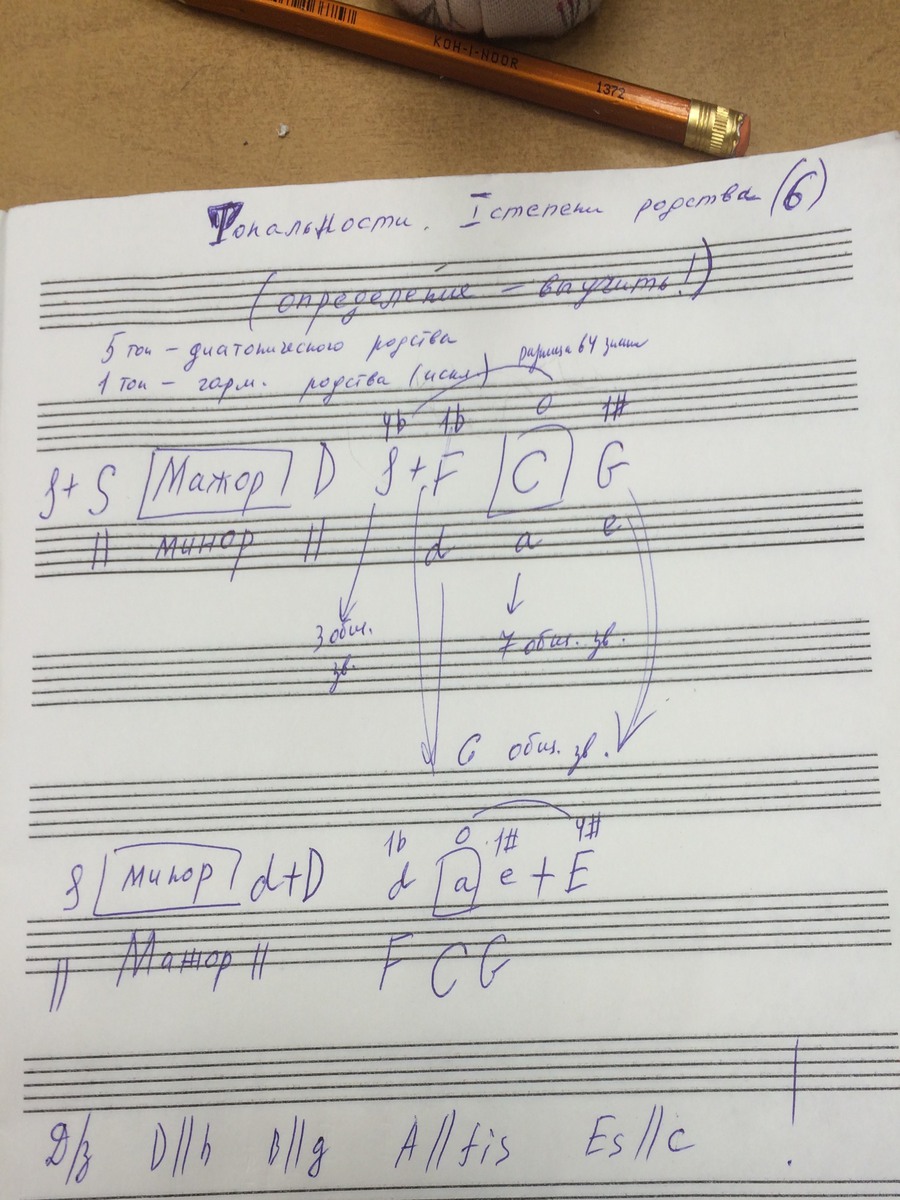 KOH-I-NOOR 1372
Тональности. I степени родства (6)
(определения – выучить!)
5 тон – диатонического родства
1 тон – гарм. родства (искл.)
разница в 4 знака
4b 1b 0 1#
s + S Мажор D s + F C G
|| минор || d a e
3 общ. зв.
7 общ. зв.
6 общ. зв.
1b 0 1# 4#
s минор d + D d a e + E
|| Мажор || F C G
Д/з D||h B||g A||fis Es||c !